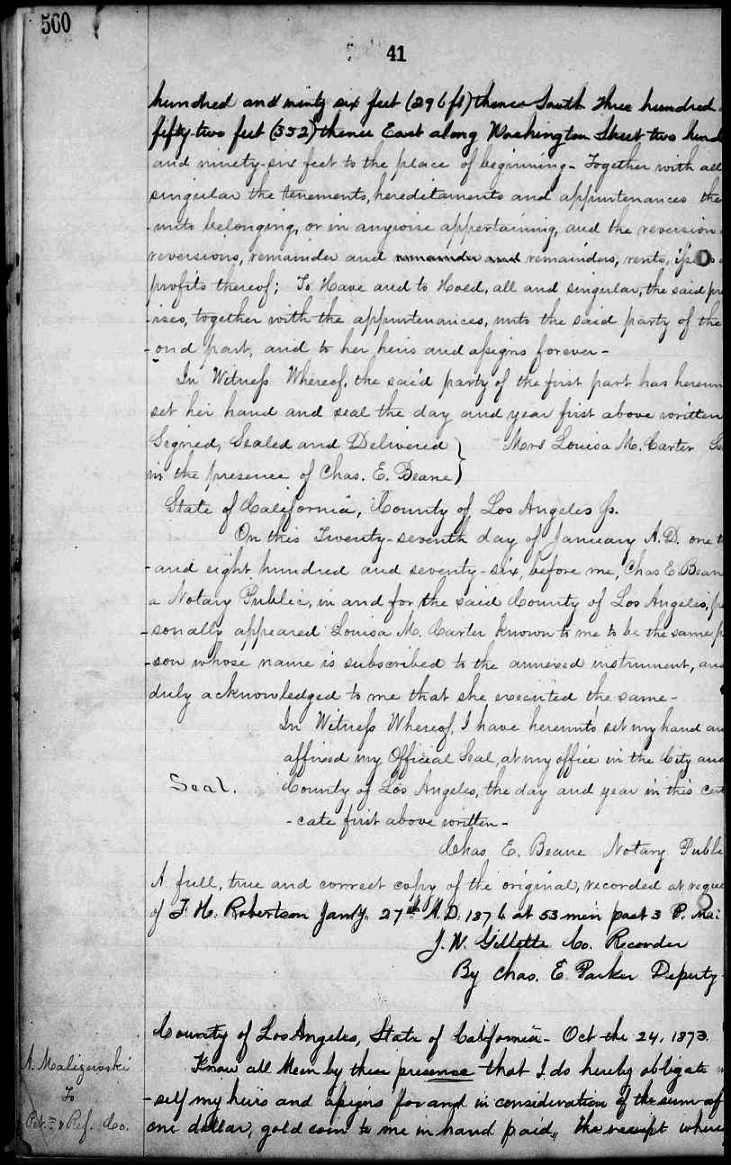 560
41
hundred and ninty six feet (296 ft) thence South three hundred
fifty-two feet (352) thence East along Washington Street two hund
and ninety-six feet to the place of beginning - Together with all
singular the tenements, hereditaments and appurtenances the
-unto belonging, or in anywise appertaining, and the reversion
reversions, remainder and remainder and remainders, rents, iss s
profits thereof; To Have and to Hold, all and singular, the said pre
-ises, together with the appurtenances, unto the said party of the
-ond part, and to her heirs and assigns forever -
In Witness Whereof, the said party of the first part has hereun
set her hand and seal the day and year first above written
Signed, Sealed and Delivered } Mrs Louisa M. Carter
in the presence of Chas. E. Beane }
State of California, County of Los Angeles ss.
On this Twenty-seventh day of January A.D. one t
-and eight hundred and seventy-six, before me, Chas E Bean
a Notary Public, in and for the said County of Los Angeles, pe
-sonally appeared Louisa M. Carter known to me to be the same p
-son whose name is subscribed to the annexed instrument, and
duly acknowledged to me that she executed the same -
In Witness Whereof, I have hereunto set my hand an
affixed my Official Seal, at my office in the City and
Seal. County of Los Angeles, the day and year in this cert
-cate first above written -
Chas. E. Beane Notary Publi
A full, true and correct copy of the original, recorded at reque
of T. H. Robertson Jan'y. 27th A.D. 1876 at 53 min past 3 P. M.
J. W. Gillette Co. Recorder
By Chas. E. Parker Deputy-
County of Los Angeles, State of California - Oct the 24, 1873.
A. Malizewski
To
Pet. & Ref. Co.
Know all Men by these presence that I do hereby obligate
-self my heirs and assigns for and in consideration of the sum of
one dollar, gold coin to me in hand paid, the receipt where